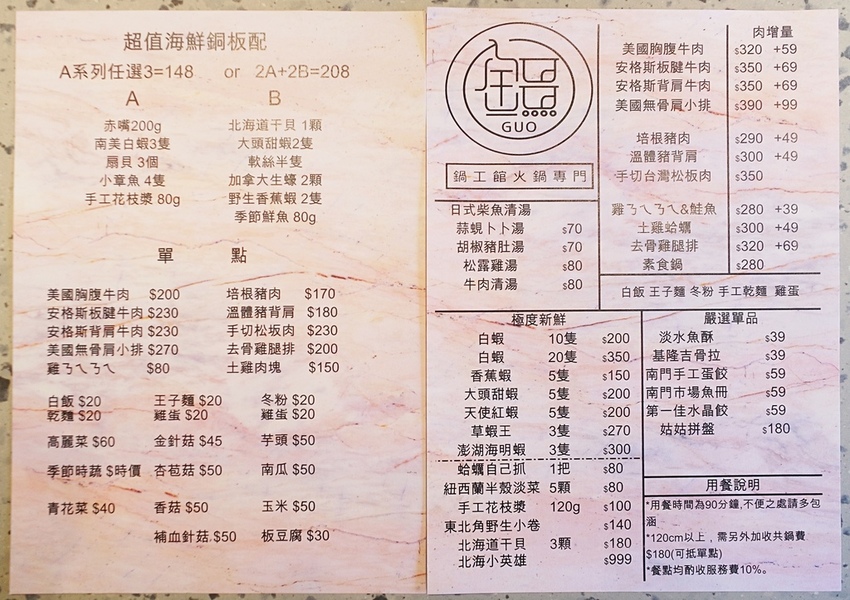 超值海鮮銅板配
A系列任選3=148 or 2A+2B=208
A B
赤嘴200g 北海道干貝 1顆
南美白蝦3隻 大頭甜蝦2隻
扇貝 3個 軟絲半隻
小章魚 4隻 加拿大生蠔 2顆
手工花枝漿 80g 野生香蕉蝦 2隻
季節鮮魚 80g
單 點
美國胸腹牛肉 $200 培根豬肉 $170
安格斯板腱牛肉 $230 溫體豬背肩 $180
安格斯背肩牛肉 $230 手切松坂肉 $230
美國無骨肩小排 $270 去骨雞腿排 $200
雞ㄋㄟㄋㄟ $80 土雞肉塊 $150
白飯 $20 王子麵 $20 冬粉 $20
乾麵 $20 雞蛋 $20 雞蛋 $20
高麗菜 $60 金針菇 $45 芋頭 $50
季節時蔬 $時價 杏苞菇 $50 南瓜 $50
青花菜 $40 香菇 $50 玉米 $50
補血針菇 $50 板豆腐 $30
GUO
鍋工館火鍋專門
日式柴魚清湯
蒜蜆卜卜湯 $70
胡椒豬肚湯 $70
松露雞湯 $80
牛肉清湯 $80
肉增量
美國胸腹牛肉 $320 +59
安格斯板腱牛肉 $350 +69
安格斯背肩牛肉 $350 +69
美國無骨肩小排 $390 +99
培根豬肉 $290 +49
溫體豬背肩 $300 +49
手切台灣松板肉 $350
雞ㄋㄟㄋㄟ&鮭魚 $280 +39
土雞蛤蠣 $300 +49
去骨雞腿排 $320 +69
素食鍋 $280
白飯 王子麵 冬粉 手工乾麵 雞蛋
極度新鮮
白蝦 10隻 $200
白蝦 20隻 $350
香蕉蝦 5隻 $150
大頭甜蝦 5隻 $200
天使紅蝦 5隻 $200
草蝦王 3隻 $270
澎湖海明蝦 3隻 $300
蛤蠣自己抓 1把 $80
紐西蘭半殼淡菜 5顆 $80
手工花枝漿 120g $100
東北角野生小卷 $140
北海道干貝 3顆 $180
北海小英雄 $999
嚴選單品
淡水魚酥 $39
基隆吉骨拉 $39
南門手工蛋餃 $59
南門市場魚冊 $59
第一佳水晶餃 $59
姑姑拼盤 $180
用餐說明
*用餐時間為90分鐘,不便之處請多包
涵
*120cm以上，需另外加收共鍋費
$180(可抵單點)
*餐點均酌收服務費10%。